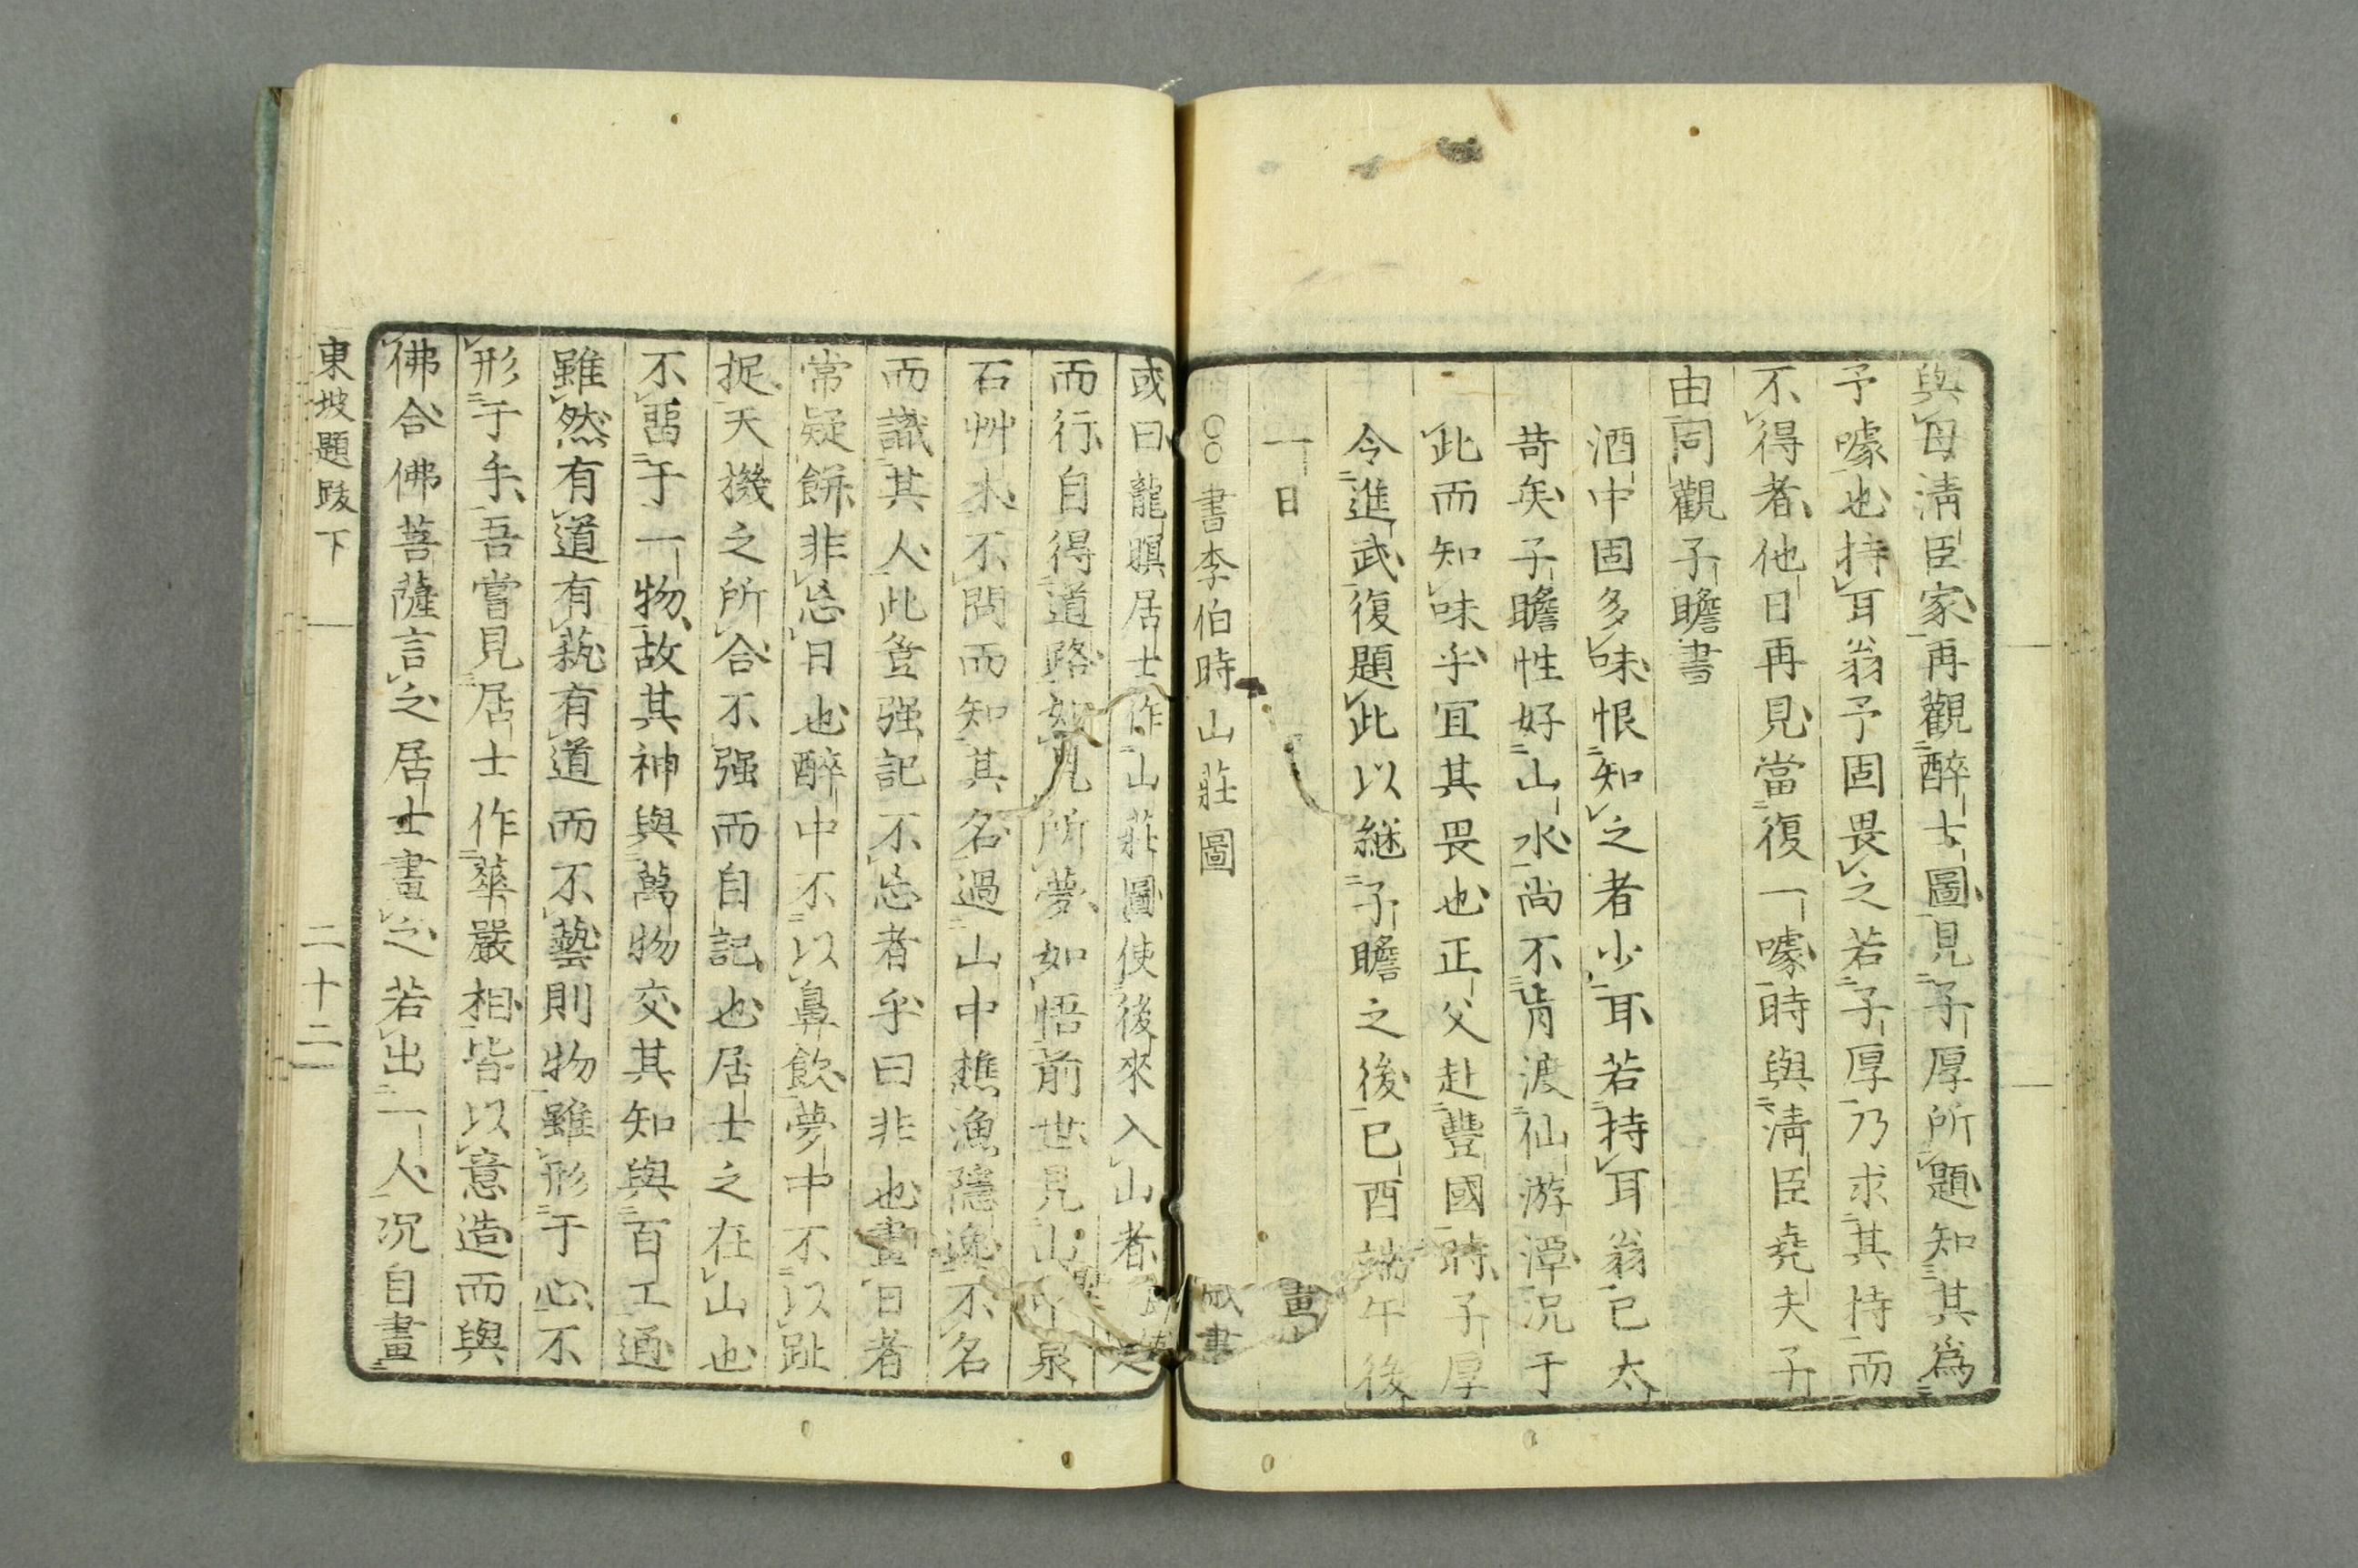 與母清臣家再觀醉士圖見子厚所題知其爲
予噱也持耳翁予固畏之若子厚乃求其持而
不得者他日再見當復一噱時與清臣堯夫子
由同觀子瞻書
酒中固多味恨知之者少耳若持耳翁已太
苛矣子瞻性好山水尚不肯渡仙游潭況于
此而知味乎宜其畏也正父赴豐國時子厚
令進武復題此以継子瞻之後己酉端午後
一日
〇〇書李伯時山莊圖
或曰龍眠居士作山莊圖使後來入山者
而行自得道路如見所夢如悟前世見山中泉
石艸木不問而知其名過山中樵漁隱逸不名
而識其人此豈强記不忘者乎曰非也畫日者
常疑餅非忘日也醉中不以鼻飲夢中不以趾
捉天機之所合不强而自記也居士之在山也
不畱于一物故其神與萬物交其知與百工通
雖然有道有藝有道而不藝則物雖形于心不
形于手吾嘗見居士作華嚴相皆以意造而與
佛合佛菩薩言之居士畫之若出一人况自畫
東坡題跋下
二十二